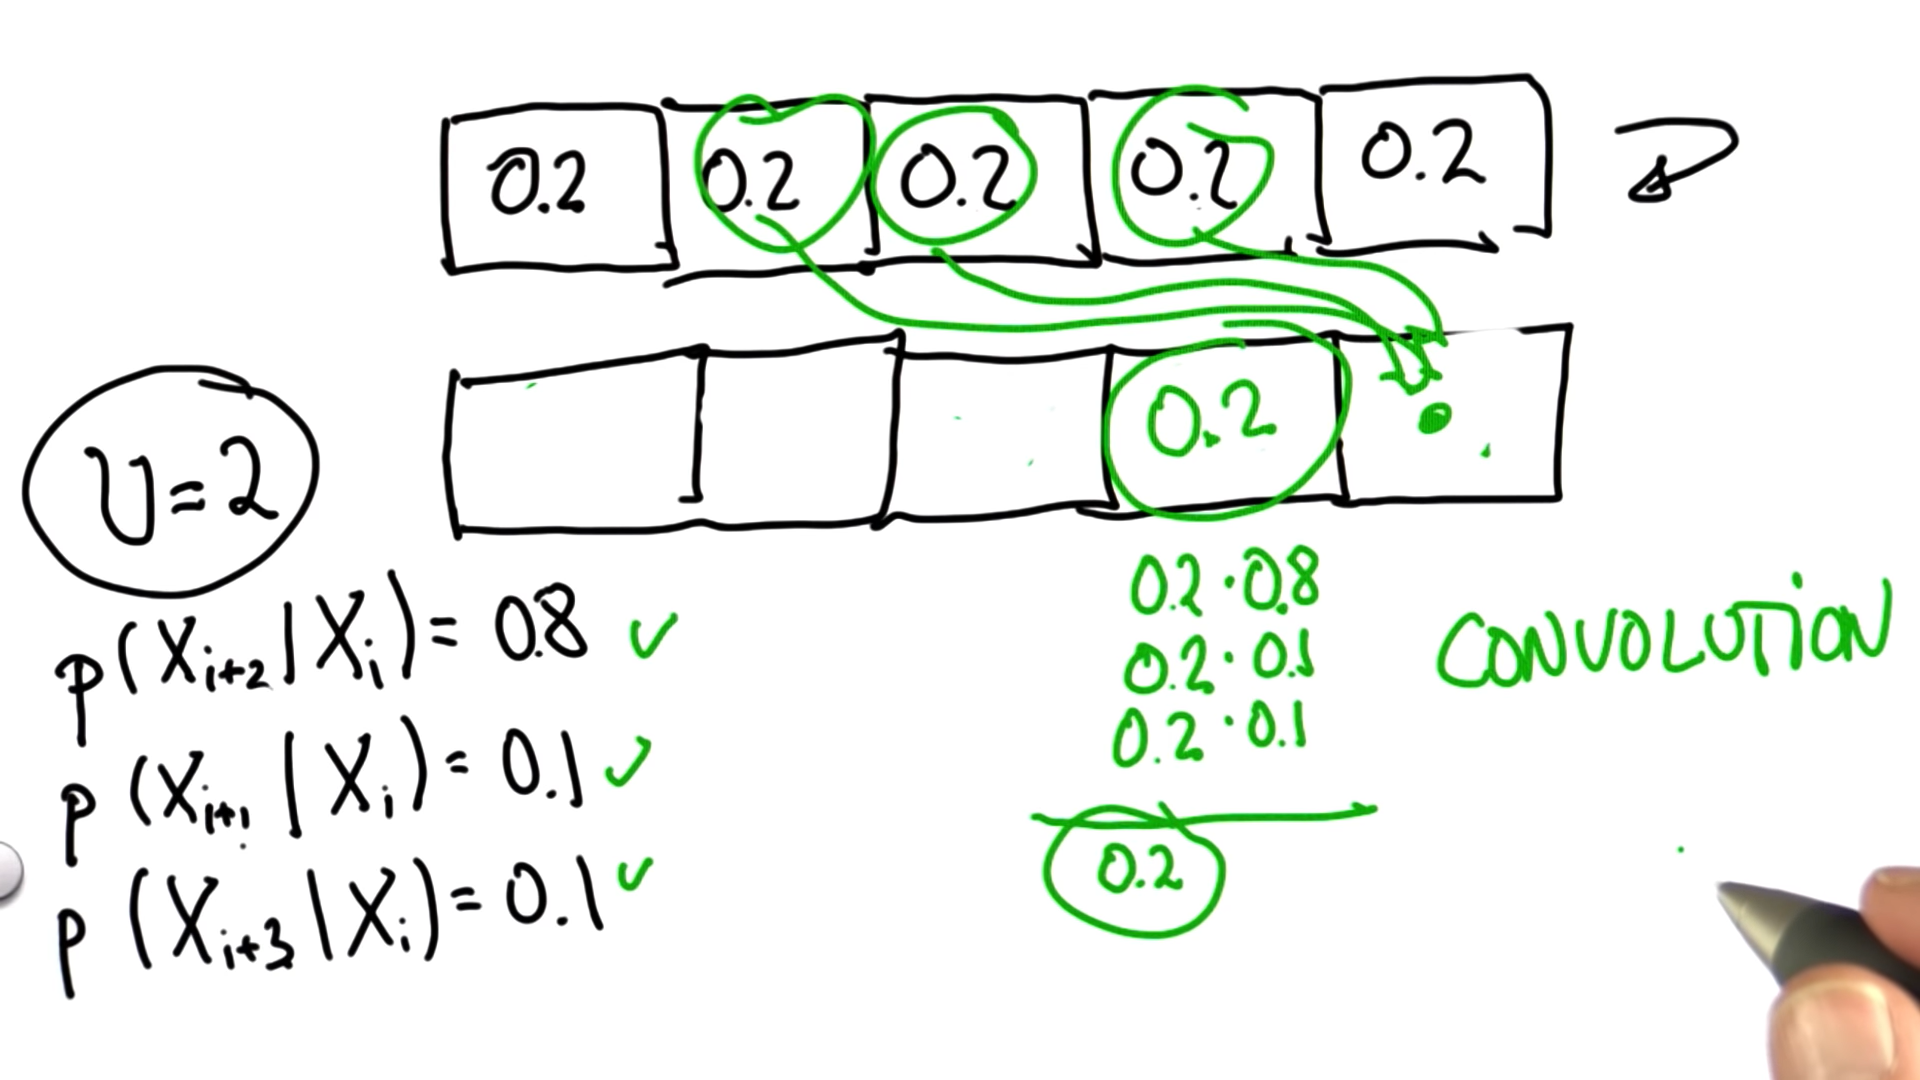 0.2 0.2 0.2 0.2 0.2
0.2
U=2
p(X_{i+2}|X_i)=0.8 ✓
p(X_{i+1}|X_i)=0.1 ✓
p(X_{i+3}|X_i)=0.1 ✓
0.2·0.8
0.2·0.1
0.2·0.1
0.2
CONVOLUTION